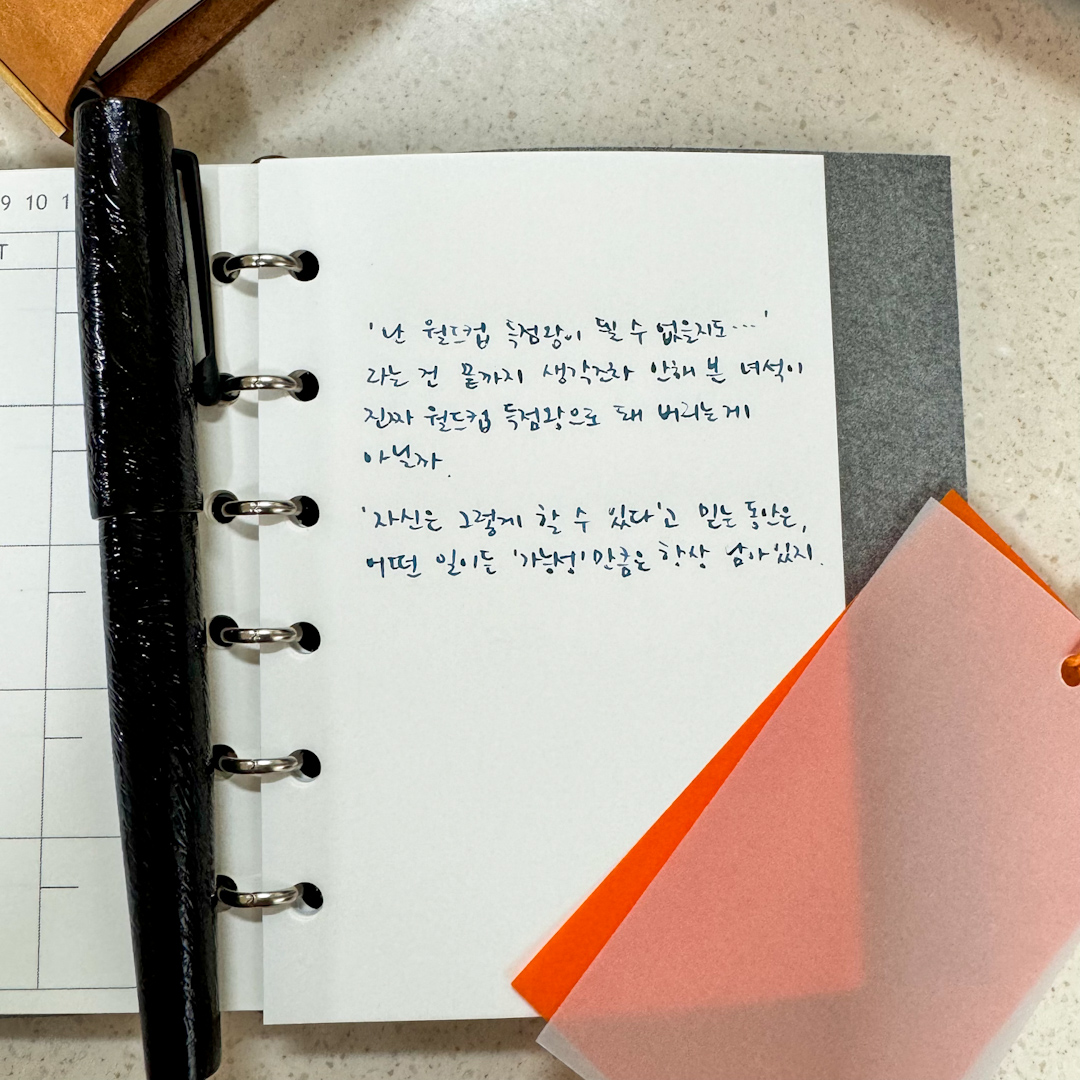 9 10 1
T
'난 월드컵 득점왕이 될 수 없을지도…'
라는 건 끝까지 생각조차 안해 본 녀석이
진짜 월드컵 득점왕으로 돼 버리는게
아닐까.
'자신은 그렇게 할 수 있다'고 믿는 동안은,
어떤 일이든 '가능성'만큼은 항상 남아있지.